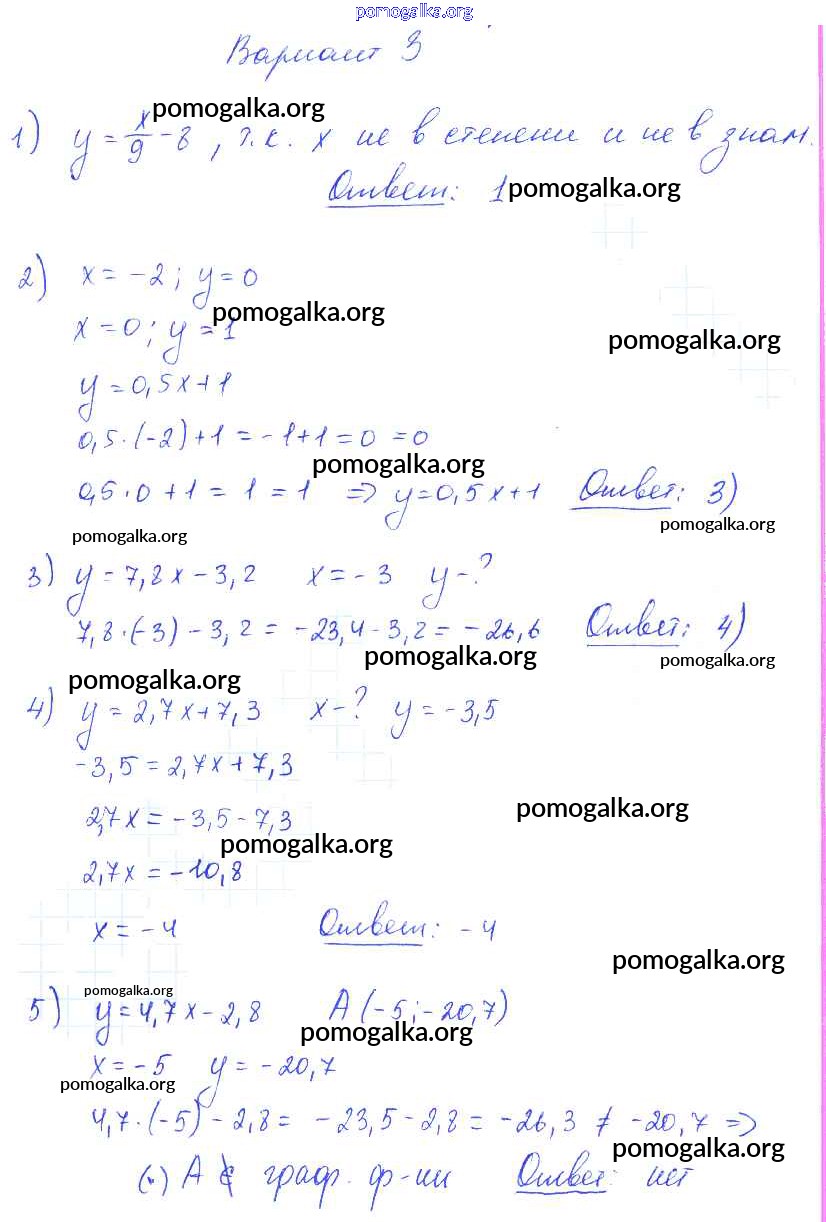 pomogalka.org
Вариант 3
pomogalka.org
1) y = x/9 - 8, т.к. x не в степени и не в знам.
Ответ: 1 pomogalka.org
2) x = -2; y = 0
pomogalka.org
x = 0; y = 1
pomogalka.org
y = 0,5x + 1
0,5·(-2) + 1 = -1 + 1 = 0 = 0
pomogalka.org
0,5·0 + 1 = 1 = 1 => y = 0,5x + 1 Ответ: 3)
pomogalka.org
pomogalka.org
3) y = 7,8x - 3,2 x = -3 y - ?
7,8·(-3) - 3,2 = -23,4 - 3,2 = -26,6 Ответ: 4)
pomogalka.org
pomogalka.org
pomogalka.org
4) y = 2,7x + 7,3 x - ? y = -3,5
-3,5 = 2,7x + 7,3
pomogalka.org
2,7x = -3,5 - 7,3
pomogalka.org
2,7x = -10,8
x = -4 Ответ: -4
pomogalka.org
pomogalka.org
5) y = 4,7x - 2,8 A (-5; -20,7)
pomogalka.org
x = -5 y = -20,7
pomogalka.org
4,7·(-5) - 2,8 = -23,5 - 2,8 = -26,3 ≠ -20,7 =>
pomogalka.org
(·) A ∉ граф. ф-ии Ответ: нет